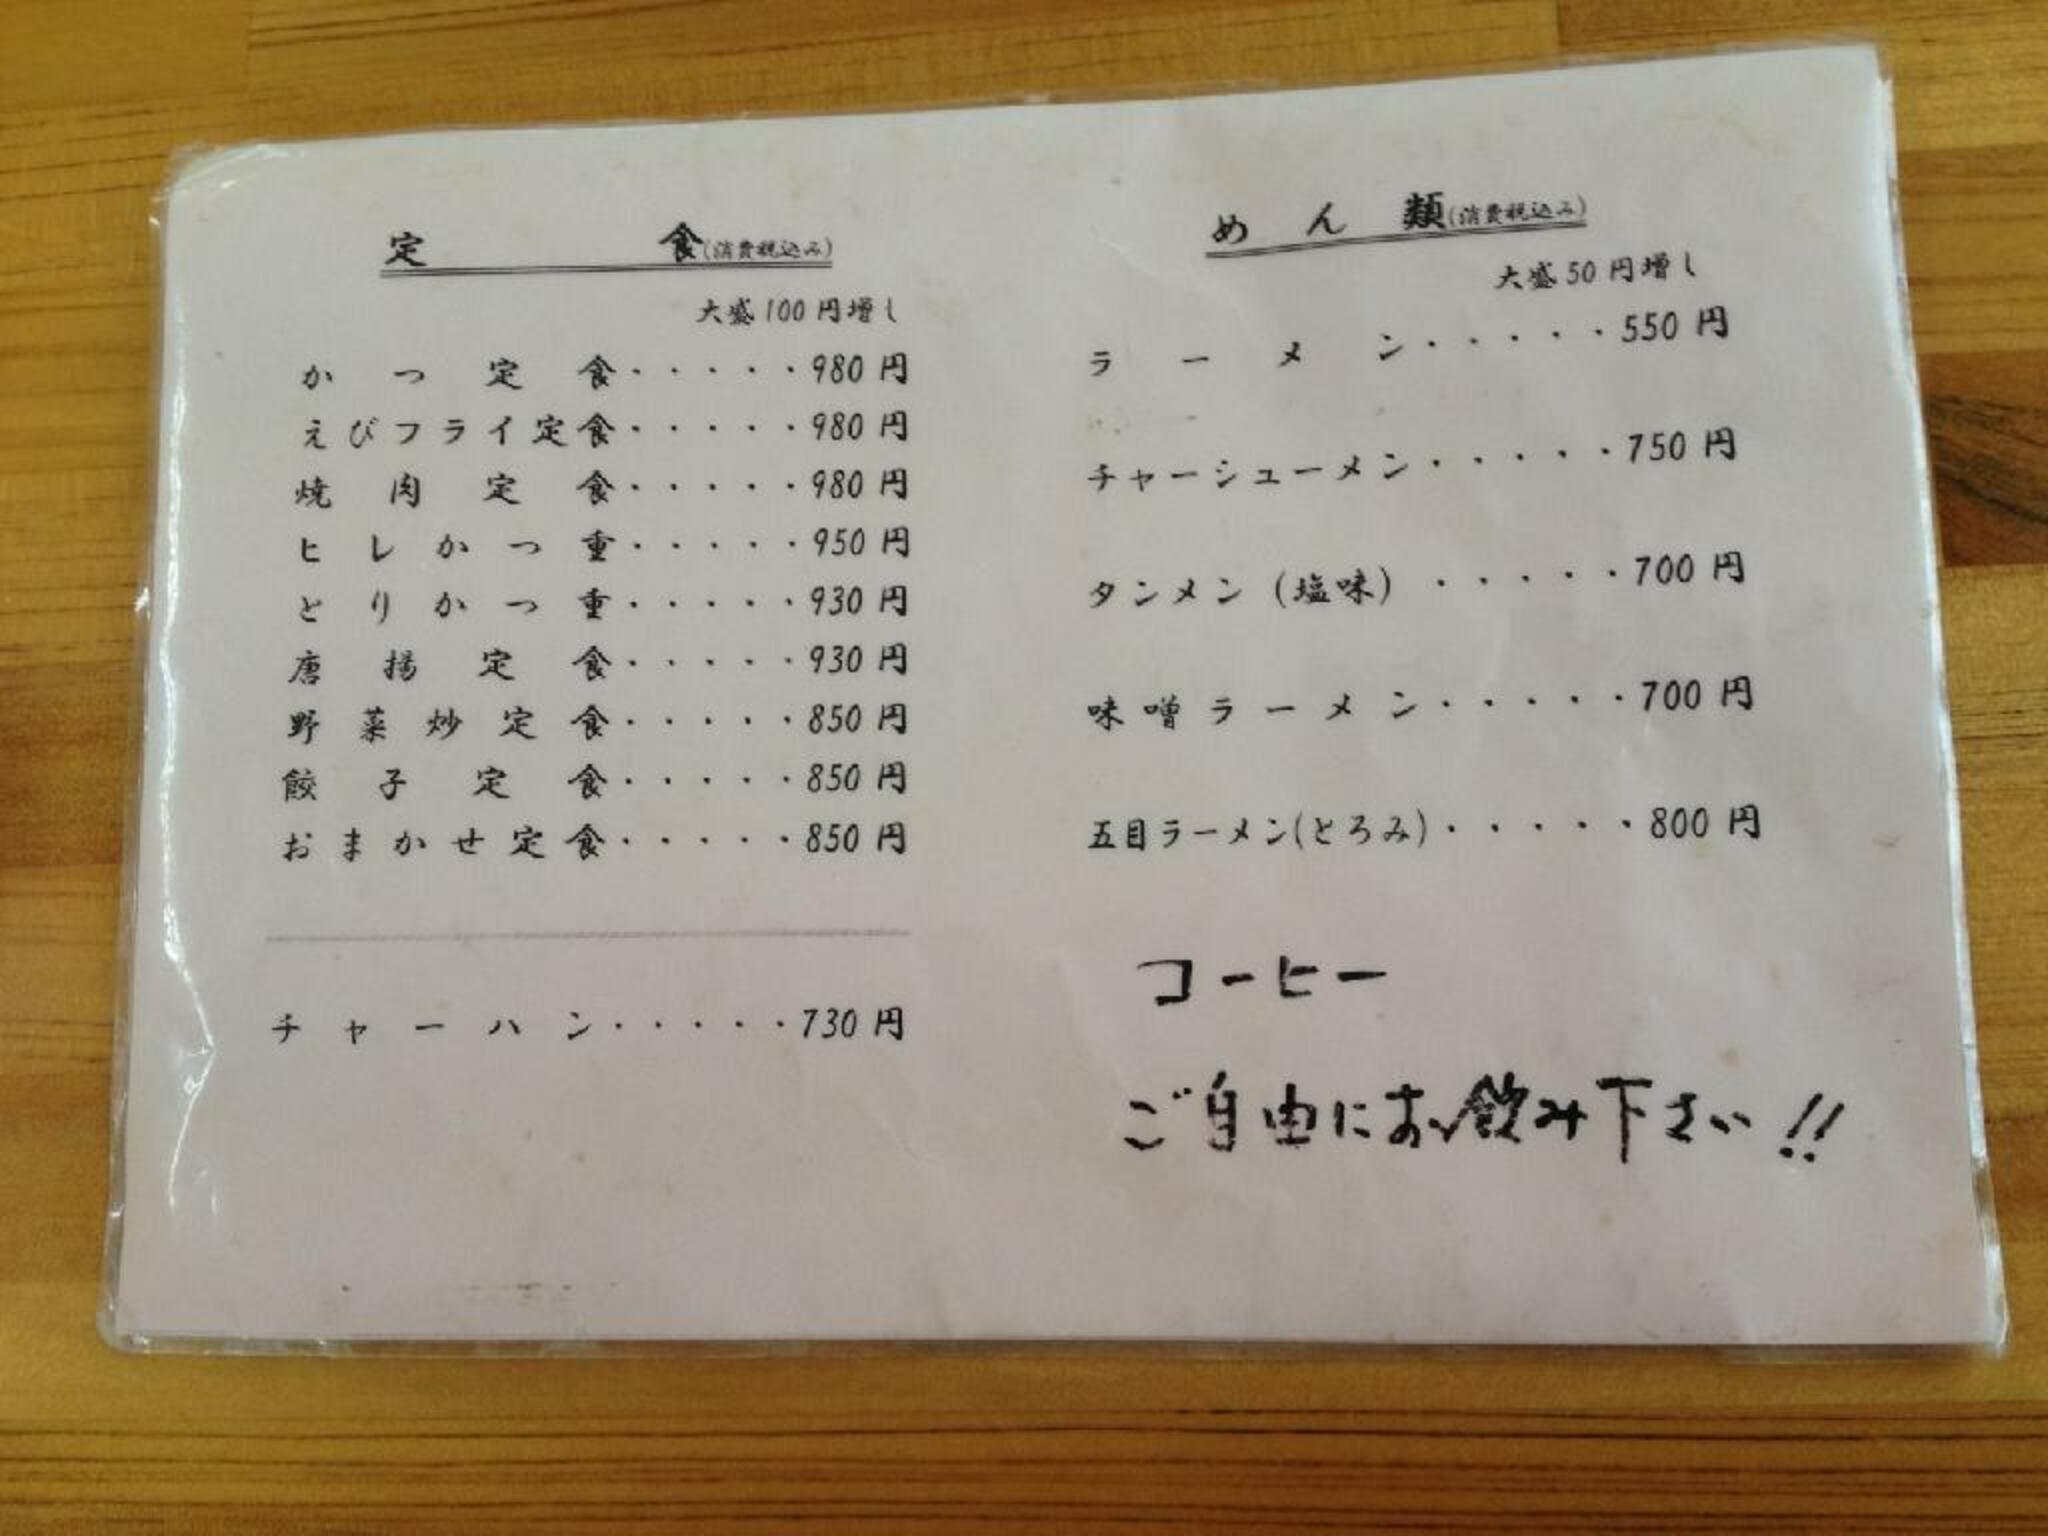 定食(消費税込み)
大盛100円増し
かつ定食・・・・・980円
えびフライ定食・・・・・980円
焼肉定食・・・・・980円
ヒレかつ重・・・・・950円
とりかつ重・・・・・930円
唐揚定食・・・・・930円
野菜炒定食・・・・・850円
餃子定食・・・・・850円
おまかせ定食・・・・・850円
チャーハン・・・・・730円
めん類(消費税込み)
大盛50円増し
ラーメン・・・・・550円
チャーシューメン・・・・・750円
タンメン(塩味)・・・・・700円
味噌ラーメン・・・・・700円
五目ラーメン(とろみ)・・・・・800円
コーヒー
ご自由にお飲み下さい!!